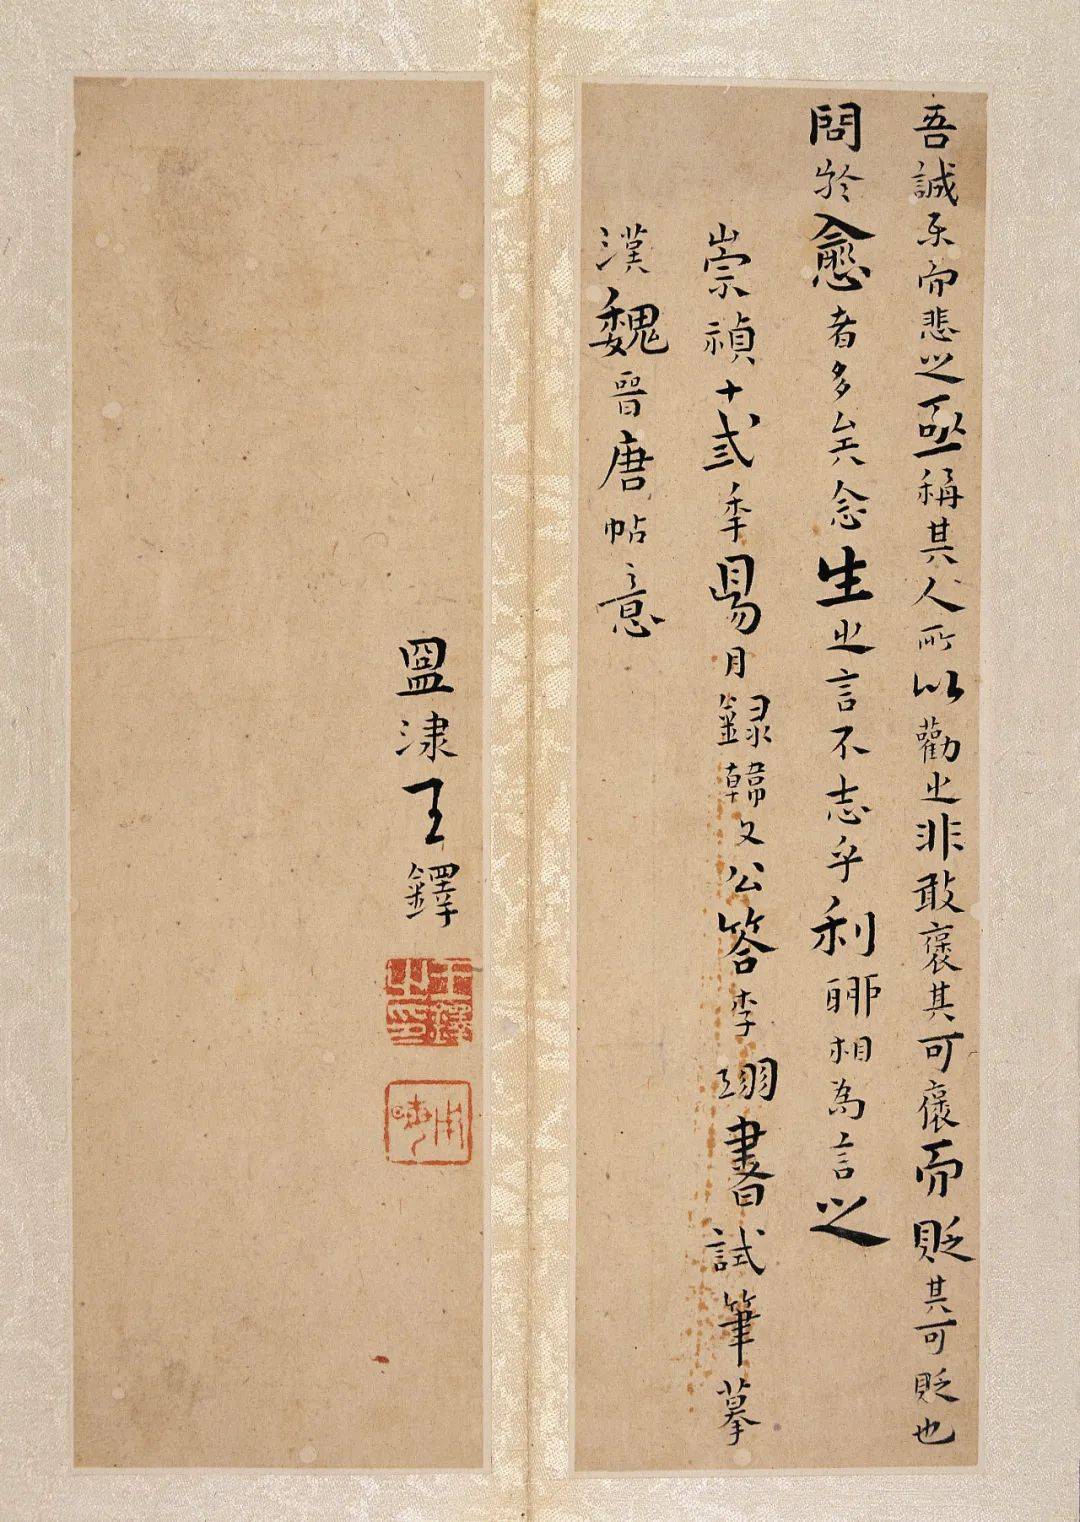 吾誠樂而悲之亟稱其人所以勸之非敢褒其可褒而貶其可貶也
問於愈者多矣念生之言不志乎利聊相為言之
崇禎十貳季易月録韓文公答李翊書試筆摹
漢魏晉唐帖意
孟津王鐸
王鐸之印